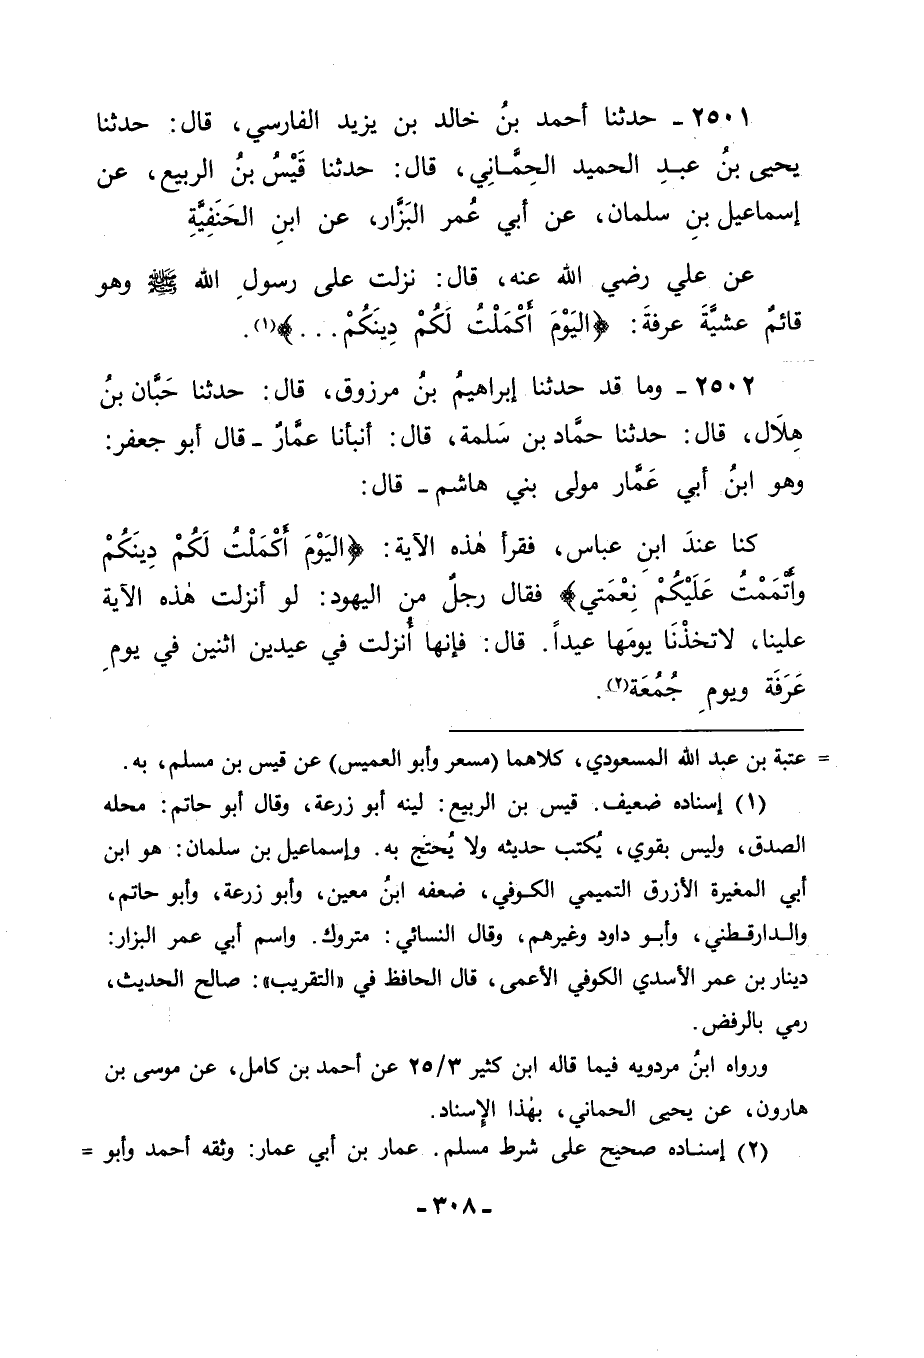 ٢٥٠١ ـ حدثنا أحمد بنُ خالد بن يزيد الفارسي، قال: حدثنا
يحيى بنُ عبدِ الحميد الحِمَّاني، قال: حدثنا قَيْسُ بنُ الربيع، عن
إسماعيل بنِ سلمان، عن أبي عُمر البَزَّار، عن ابنِ الحَنَفِيَّةِ
عن علي رضي الله عنه، قال: نزلت على رسولِ الله ﷺ وهو
قائمٌ عشيَّةَ عرفةَ: ﴿اليَوْمَ أَكْمَلْتُ لَكُمْ دِينَكُمْ . . .﴾(١).
٢٥٠٢ ـ وما قد حدثنا إبراهيمُ بنُ مرزوق، قال: حدثنا حَبَّان بنُ
هِلَال، قال: حدثنا حمَّاد بن سَلمة، قال: أنبأنا عمَّارٌ ـ قال أبو جعفر:
وهو ابنُ أبي عَمَّار مولى بني هاشم ـ قال:
كنا عندَ ابنِ عباس، فقرأ هٰذه الآية: ﴿اليَوْمَ أَكْمَلْتُ لَكُمْ دِينَكُمْ
وأَتْمَمْتُ عَلَيْكُمْ نِعْمَتي﴾ فقال رجلٌ من اليهود: لو أنزلت هٰذه الآية
علينا، لاتخذْنَا يومَها عيداً. قال: فإنها أُنزلت في عيدين اثنين في يومِ
عَرَفَة ويومِ جُمُعَة(٢).
= عتبة بن عبد الله المسعودي، كلاهما (مسعر وأبو العميس) عن قيس بن مسلم، به.
(١) إسناده ضعيف. قيس بن الربيع: لينه أبو زرعة، وقال أبو حاتم: محله
الصدق، وليس بقوي، يُكتب حديثه ولا يُحتج به. وإسماعيل بن سلمان: هو ابن
أبي المغيرة الأزرق التميمي الكوفي، ضعفه ابنُ معين، وأبو زرعة، وأبو حاتم،
والدارقطني، وأبو داود وغيرهم، وقال النسائي: متروك. واسم أبي عمر البزار:
دينار بن عمر الأسدي الكوفي الأعمى، قال الحافظ في «التقريب»: صالح الحديث،
رمي بالرفض.
ورواه ابنُ مردويه فيما قاله ابن كثير ٢٥/٣ عن أحمد بن كامل، عن موسى بن
هارون، عن يحيى الحماني، بهٰذا الإِسناد.
(٢) إسناده صحيح على شرط مسلم. عمار بن أبي عمار: وثقه أحمد وأبو =
ـ ٣٠٨ ـ